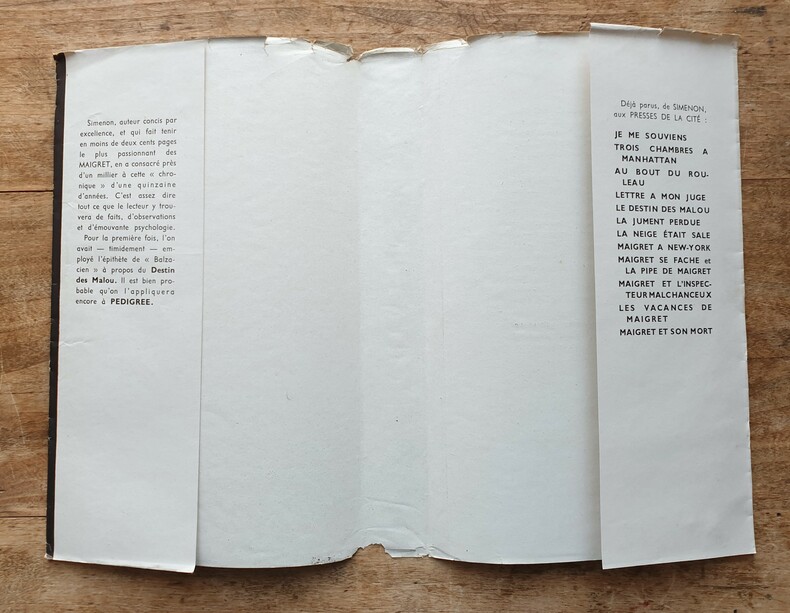 Simenon, auteur concis par
excellence, et qui fait tenir
en moins de deux cents pages
le plus passionnant des
MAIGRET, en a consacré près
d'un millier à cette « chro-
nique » d'une quinzaine
d'années. C'est assez dire
tout ce que le lecteur y trou-
vera de faits, d'observations
et d'émouvante psychologie.
Pour la première fois, l'on
avait — timidement — em-
ployé l'épithète de « Balza-
cien » à propos du Destin
des Malou. Il est bien pro-
bable qu'on l'appliquera
encore à PEDIGREE.
Déjà parus, de SIMENON,
aux PRESSES DE LA CITÉ :
JE ME SOUVIENS
TROIS CHAMBRES A
MANHATTAN
AU BOUT DU ROU-
LEAU
LETTRE A MON JUGE
LE DESTIN DES MALOU
LA JUMENT PERDUE
LA NEIGE ÉTAIT SALE
MAIGRET A NEW-YORK
MAIGRET SE FACHE et
LA PIPE DE MAIGRET
MAIGRET ET L'INSPEC-
TEUR MALCHANCEUX
LES VACANCES DE
MAIGRET
MAIGRET ET SON MORT